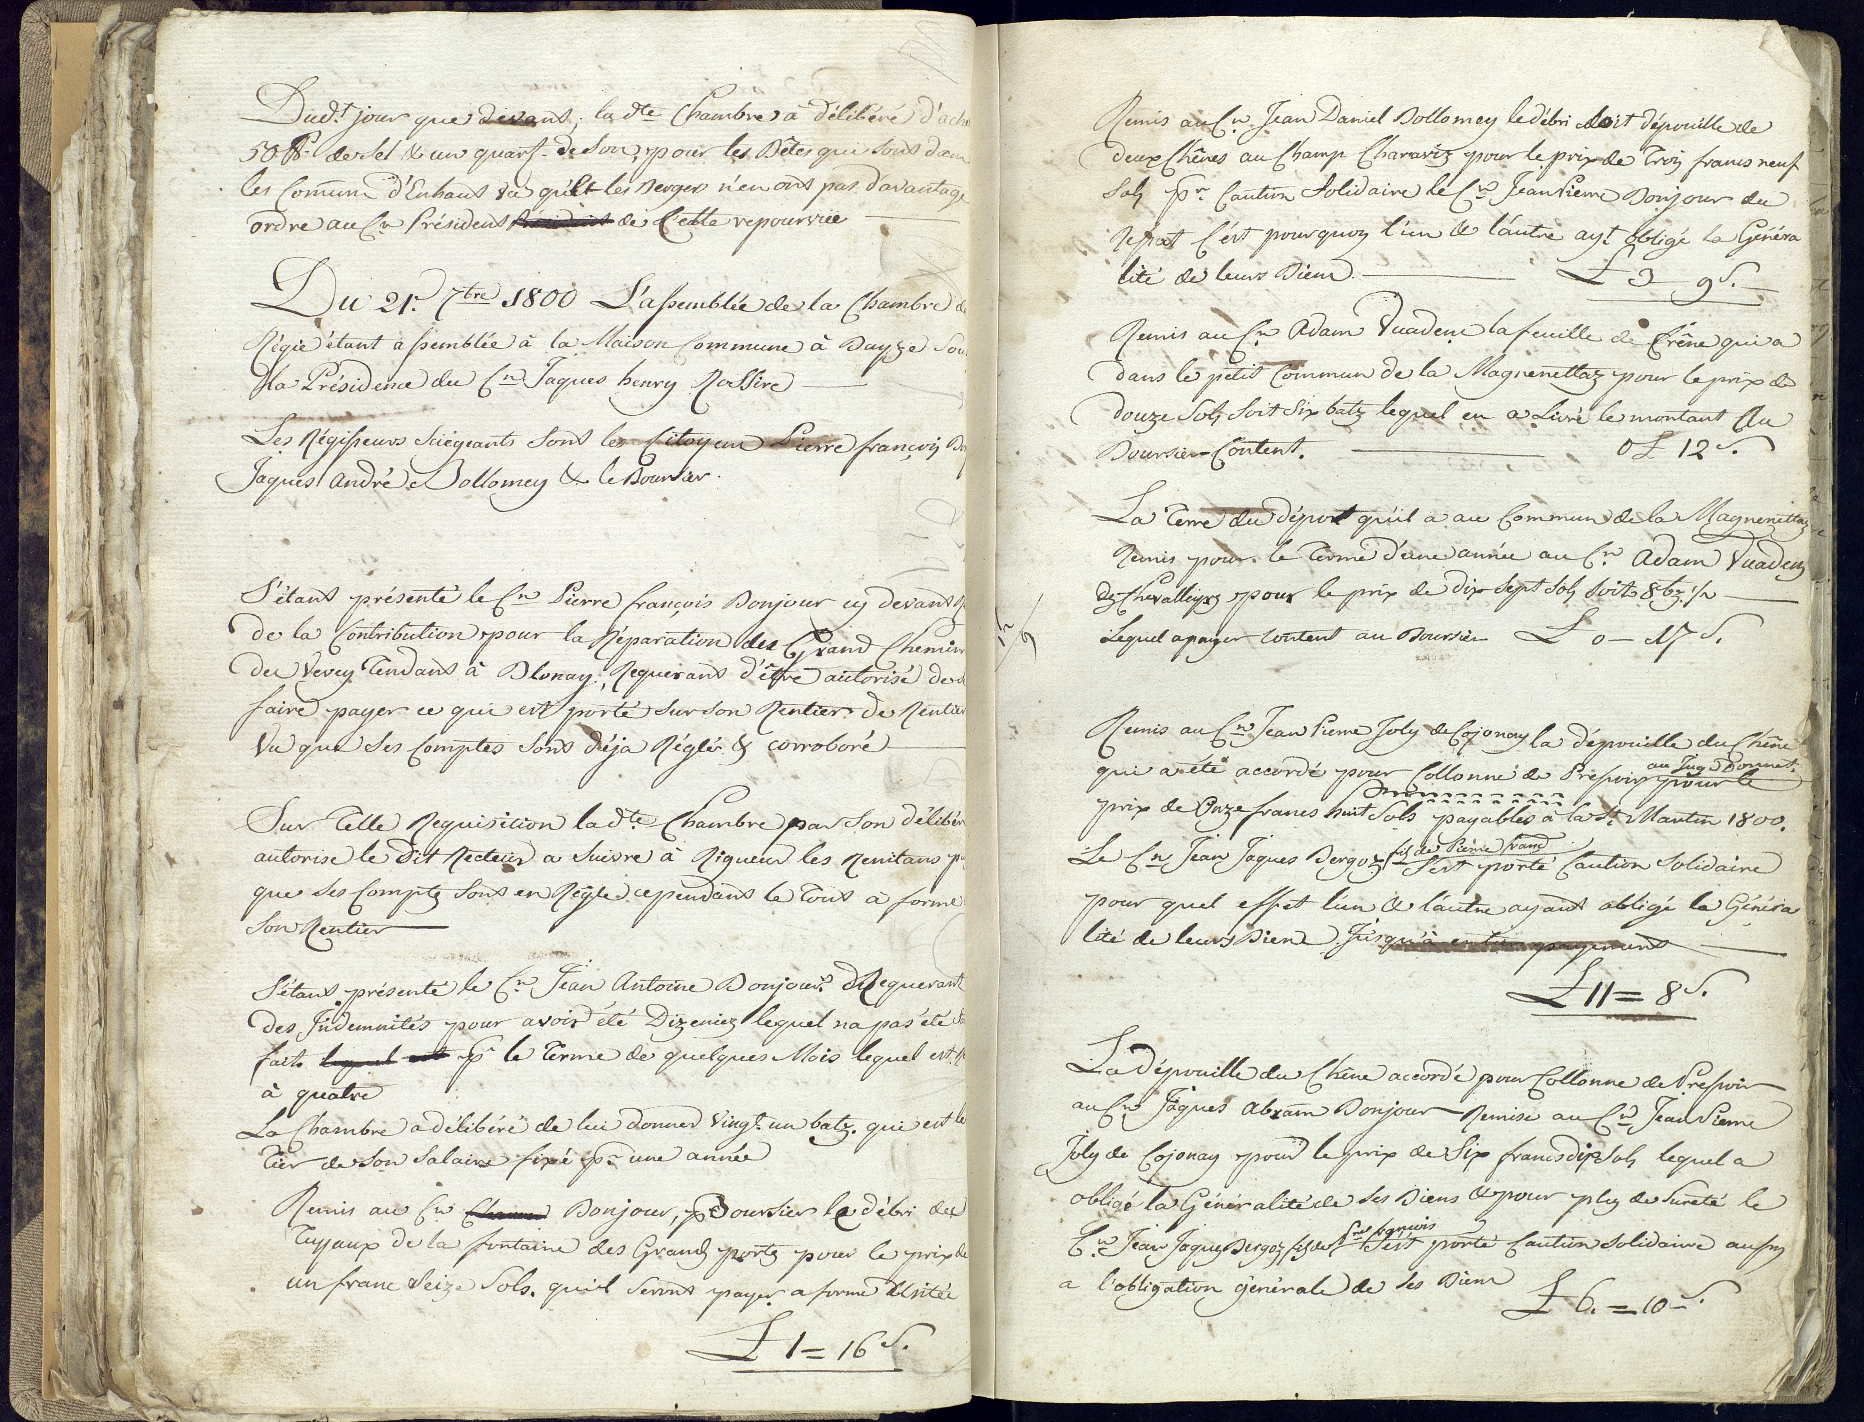 Dud.t jour que devant, la dte Chambre a délibéré d'ach
50 ℔ de Sel & un quart de Son, pour les Bêtes qui sont dans
les Commune d'Enhaut vu qu'il les Bergers n'en ont pas d'avantage
ordre au Cn Président de Cette repourvue
Du 21. 7bre 1800 L'assemblée de la Chambre de
Régie étant assemblée à la Maison Commune à Bayze Sous
la Présidence du Cn Jaques henry Rossire
Les Régisseurs Sciégeants Sont les Citoyens Pierre françois Bo
Jaques André Dollomey & le Boursier.
S'étant présenté le Cn Pierre françois Bonjour cy devant R
de la Contribution pour la Réparation des Grand Chemins
de Vevey Tendant à Blonay, Requerant d'être autorisé de se
faire payer ce qui est porté sur son Rentier de Rentier
Vu que Ses Comptes sont déja Réglé & corroboré
Sur Telle Requisition la dte Chambre par Son délibér
autorise le Dit Recteur a Suivre à Rigueur les Renitans p
que Ses Comptes Sont en Régle cependant le Tout à forme
Son Rentier
S'étant présenté le Cn Jean Antoine Bonjour Requerant
des Indemnités pour avoir été Dizenier lequel na pas été
fait pr le Terme de quelques Mois lequel est
à quatre
La Chambre a délibéré de lui donner Vingt un batz. qui est le
Tier de Son Salaire fixé pr une année
Remis au Cn Bonjour, Boursier le débri des
Tuyaux de la fontaine des Grands portz pour le prix de
un franc Seize Sols. qu'il Seront payer a forme
£ 1 = 16 S.
Remis au Cn Jean Daniel Dollomey le débri soit dépouille de
deux Chênes au Champ Charaviz pour le prix de Trois francs neuf
Sols pr. Caution Solidaire le Cn Jean Pierre Bonjour du
C'est pourquoy l'un & l'autre ayt obligé la Généra
lité de leurs Biens £ 3 9 S.
Remis au Cn Adam Vuadens la feuille de Chêne qui a
dans le petit Commun de la Magnenettaz pour le prix de
douze Sols Soit Six batz lequel en a Livré le montant Au
Boursier Content. 0 £ 12 S.
La Terre du dépot qu'il a au Commun de la Magnenettaz
Remis pour le Terme d'une année au Cn Adam Vuadens
de Chevalleyrez pour le prix de dix Sept Sols Soit 8 bz ½
Lequel a payer Content au Boursier £ 0 - 17 S.
Remis au Cn Jean Pierre Joly de Cojonay la dépouille du Chêne
qui a été accordé pour Collonne de Pressoir au Juge Bonnet pour le
prix de Onze francs huit Sols payables à la St Martin 1800.
Le Cn Jean Jaques Bergoz fils de Pierre frand S'est porté Caution Solidaire
pour quel effet l'un & l'autre ayant obligé la Généra
lité de leurs Biens Jusqu'à entier payement
£ 11 = 8 S.
La dépouille du Chêne accordé pour Collonne de Pressoir
au Cn Jaques Abram Bonjour Remise au Cn Jean Pierre
Joly de Cojonay pour le prix de Six francs dix Sols lequel a
obligé la Généralité de Ses Biens & pour plus de Sureté le
Cn Jean Jaques Bergoz fils de Pre françois S'est porté Caution Solidaire aussy
a l'obligation générale de Ses Biens £ 6. = 10 S.